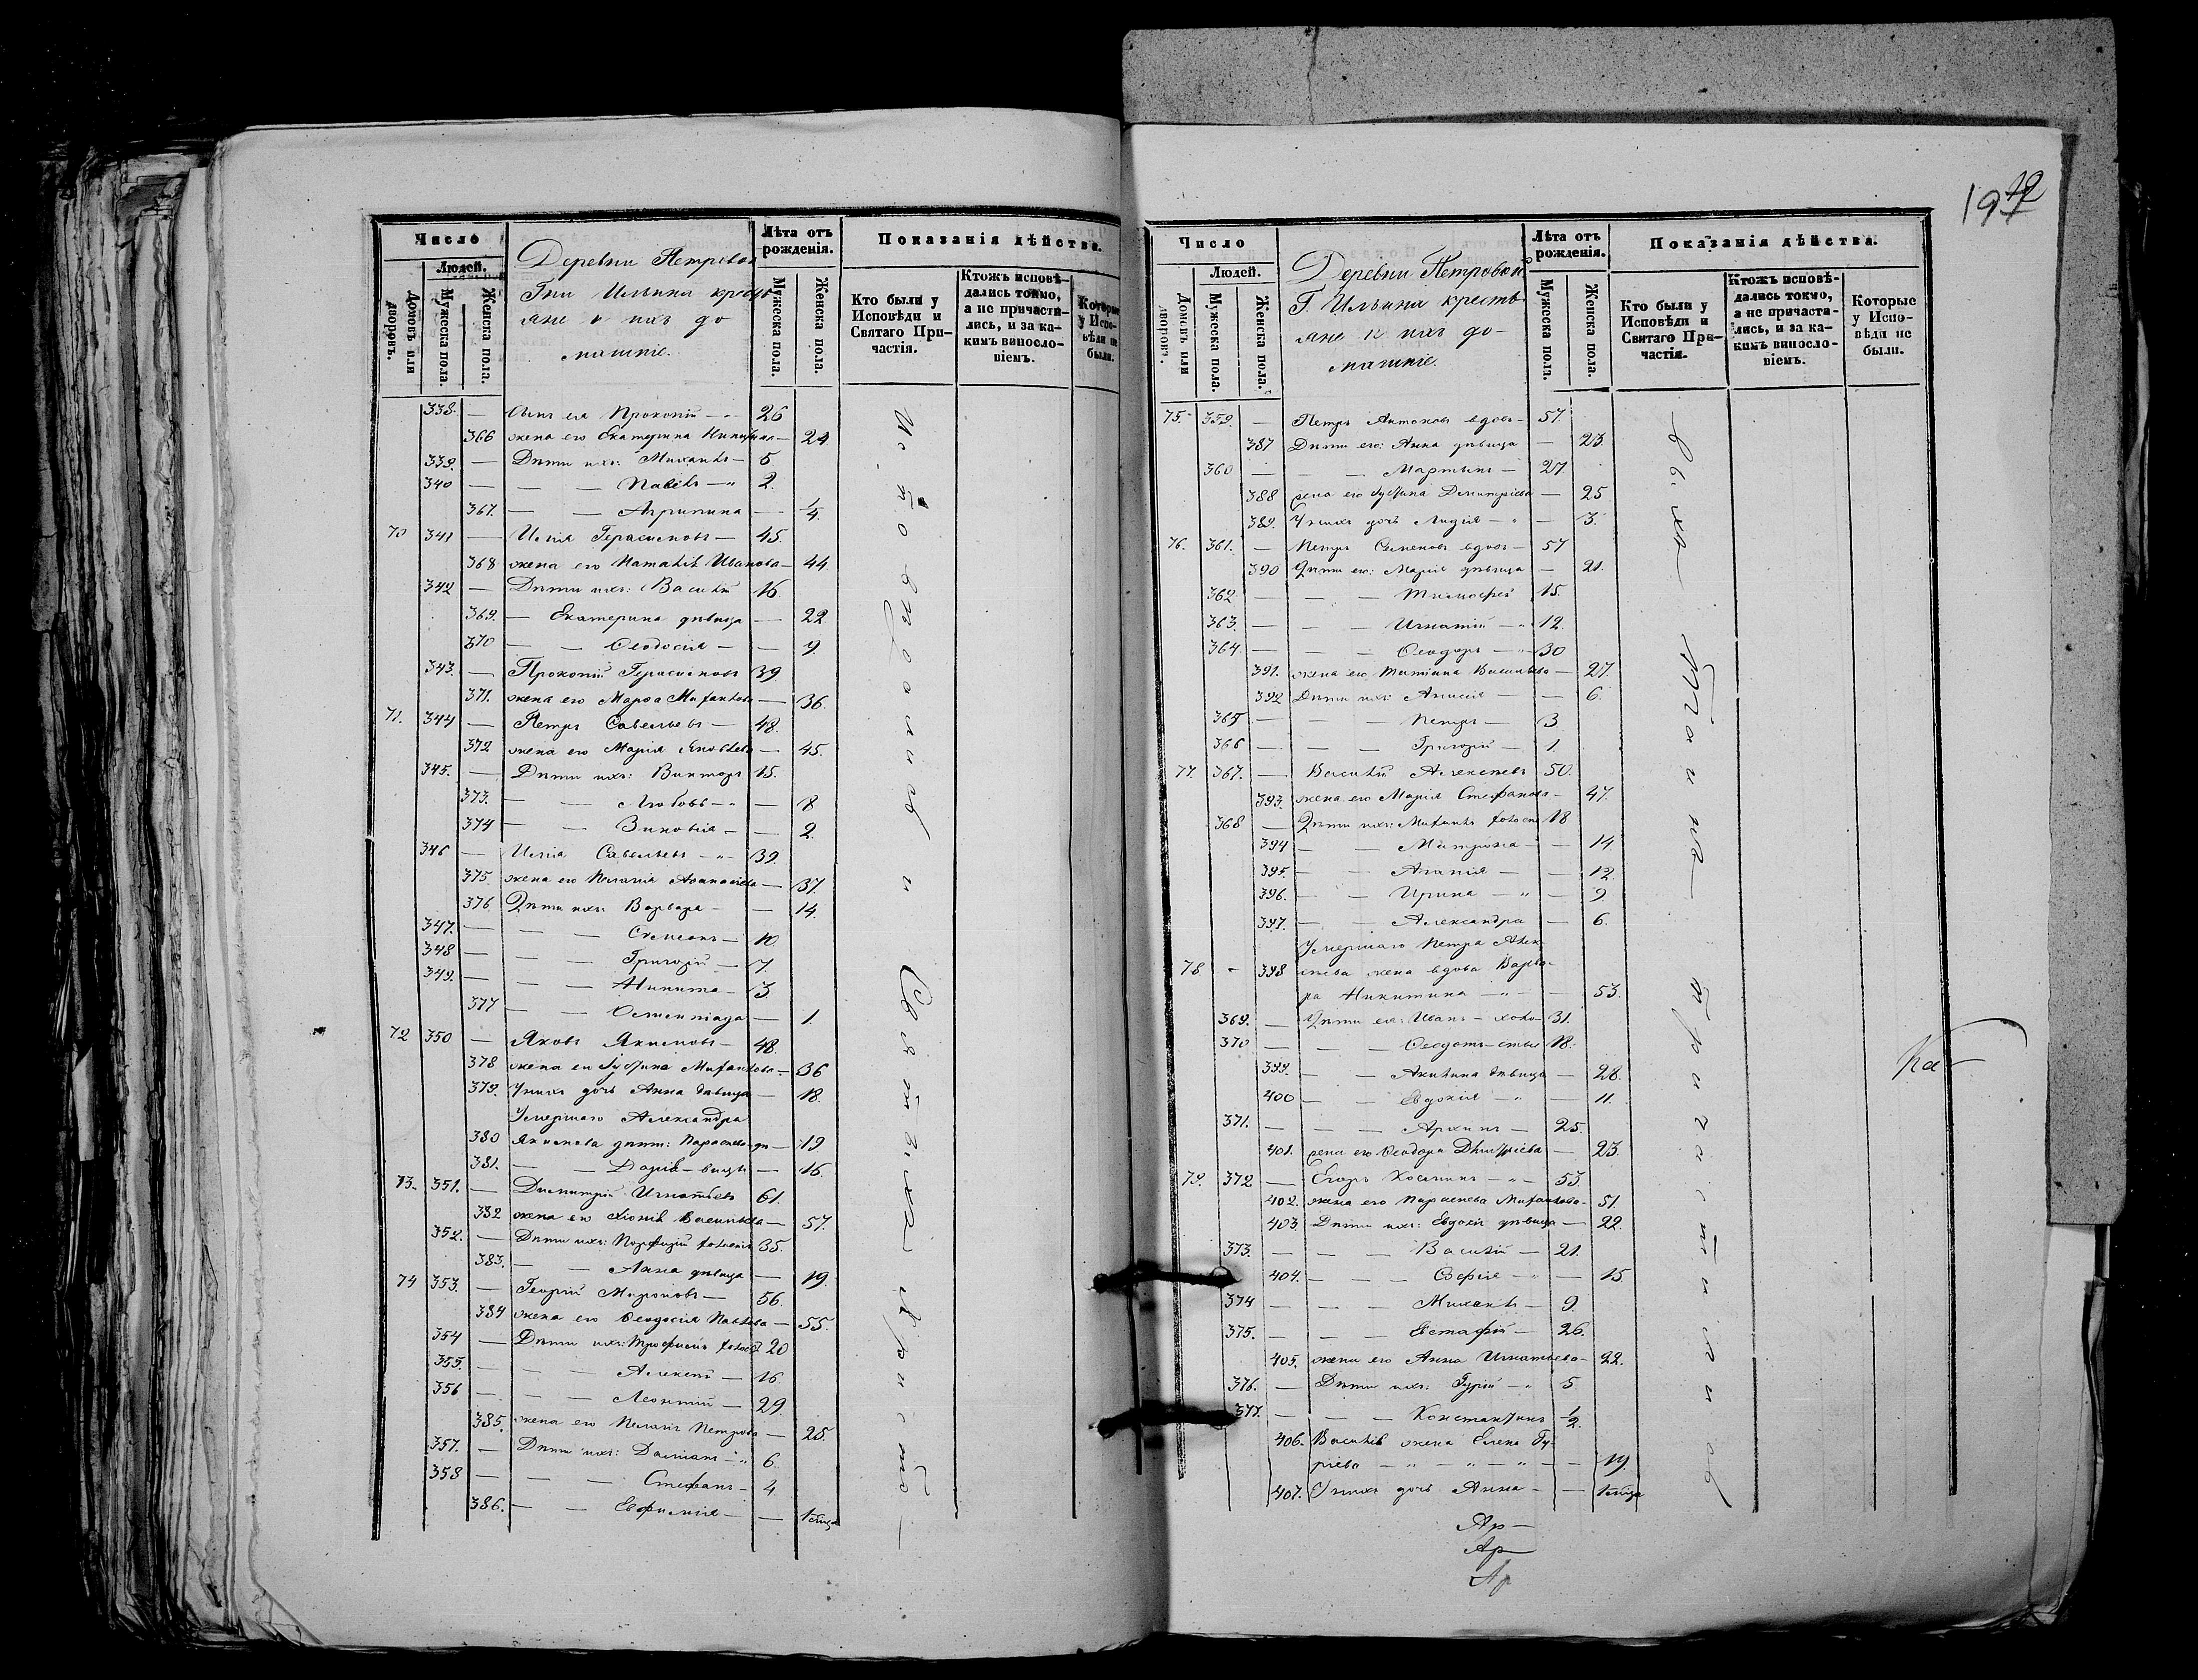 Число
Людей.
Домовъ или дворовъ.
Мужеска пола.
Женска пола.
Деревни Петровой
Гпи Ильина кресть
яне и ихъ до
машніе.
Лѣта отъ рожденія.
Мужеска пола.
Женска пола.
Показанія дѣйства.
Кто были у Исповѣди и Святаго Причастія.
Ктожъ исповѣдались токмо, а не причастились, и за какимъ винословіемъ.
Которые у Исповѣди не были.
338. — Сынъ ея Прокопій — 26
366 жена его Екатерина — 24
339. — Дѣти ихъ: Михаилъ — 5
340 — — — Павелъ — 2
367. — — Агрипина — — 1/4.
70 341 — Илія Герасимовъ — 45.
368 жена его Наталія Иванова — 44.
342 — Дѣти ихъ: Василій 16.
369. — Екатерина дѣвица — 22
370 — — Ѳеодосія — — 9.
343. — Прокопій Герасимовъ 39
371. жена его Марѳа Михаилова — 36.
71. 344 — Петръ Савельевъ — 48.
372 жена его Марія Яковлева — 45.
345. — Дѣти ихъ: Викторъ 15.
373. — — Любовь — — 8
374 — — Зиновія — — 2.
346 — Илія Савельевъ — 39.
375 жена его Пелагія Аѳанасіева — 37.
376. Дѣти ихъ: Варвара — — 14.
347. — — — Симеонъ — 10
348 — — — Григорій — 7.
349. — — — Никита — 3
377 — — — 1.
72 350 — Яковъ Якимовъ — 48.
378 жена его Іустина Михаилова — 36
379. У нихъ дочь Анна дѣвица — 18.
Умершаго Александра
380 Якимова дѣти: Параскева дѣ — 19
381. — — Дарія — вицы — 16.
73. 351. — Димитрій Игнатьевъ 61.
382 жена его Хіонія Васильева — 57.
352. — Дѣти ихъ: Порфирій холостъ 35.
383. — — Анна дѣвица — 19.
74 353. — Георгій Мироновъ — 56.
384 жена его Ѳеодосія Павлова — 55.
354 — Дѣти ихъ: Трофимъ холостъ 20
355. — — — Алексѣй — 16.
356 — — — Леонтій — 29.
385. жена его Пелагія Петрова — 25.
357. — Дѣти ихъ: Даміанъ — 6.
358 — — — Стефанъ — 4
386. — — Евфимія — —
Исповѣдались и Святыхъ Христо—
19
Число
Людей.
Домовъ или дворовъ.
Мужеска пола.
Женска пола.
Деревни Петровой
Г. Ильина кресть
яне и ихъ до-
машніе.
Лѣта отъ рожденія.
Мужеска пола.
Женска пола.
Показанія дѣйства.
Кто были у Исповѣди и Святаго Причастія.
Ктожъ исповѣдались токмо, а не причастились, и за какимъ винословіемъ.
Которые у Исповѣди не были.
75. 359. — Петръ Антоновъ вдовъ — 57.
387 Дѣти его: Анна дѣвица — 23
360 — — Мартинъ — 27
388 жена его Іустина Димитріева — 25.
389. У нихъ дочь Лидія — — 3.
76. 361. — Петръ Семеновъ вдовъ — 57
390 Дѣти его: Марія дѣвица — 21.
362 — — — Тимофей 15.
363. — — — Игнатій — 12.
364. — — — Ѳеодоръ — 30
391. жена его Татіана Васильева — 27.
392 Дѣти ихъ: Анисія — — 6.
365 — — Петръ — 3
366 — — — Григорій — 1.
77. 367. — Василій Алексѣевъ 50.
393. жена его Марія Стефанова — 47.
368 — Дѣти ихъ: Михаилъ холост 18
394 — — Матрона — — 14
395. — — Агапія — — 12
396. — — Ирина — — 9
397. — — Александра — 6.
Умершаго Петра Алек
78. — 398 сѣева жена вдова Варва-
ра Никитина — — 53.
369. — Дѣти ея: Иванъ — холо- 31.
370 — — — Ѳеодотъ — стые 18.
399. — — Акилина дѣвица — 28.
400 — — Евдокія — — 11.
371. — — — Архипъ — 25.
401. жена его Ѳеодора Дмитріева — 23.
79. 372 — Егоръ Космины — 53.
402. жена его Параскева Михаилова — 51.
403. Дѣти ихъ: Евдокія дѣвица — 22.
373. — — — Василій — 21.
404. — — — Софія — — 15
374 — — — Михаилъ — 9.
375. — — — Евстафій — 26.
405. жена его Анна Игнатьева — 22.
376. — Дѣти ихъ: Гурій — 5.
377. — — — Константинъ 1/2.
406. Василія жена Елена Гу-
ріева — — — — — 19.
407. У нихъ дочь Анна — —
выхъ Таинъ причастились
Ка—
Ар—
Ар—
Ар